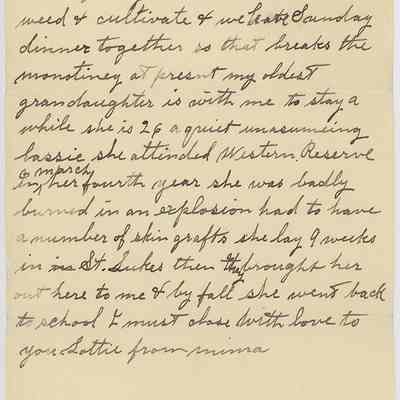 weed & cultivate & we have Sunday
dinner together so that breaks the
monotiney at present my oldest
grandaughter is with me to stay a
while she is 26 a quiet unasumeing
lassie she attinded Western Reserve
6 march
in her fourth year she was badly
burned in an explosion had to have
a number of skin grafts she lay 9 weeks
in St. Lukes then they brought her
out here to me & by fall she went back
to school I must close with love to
you Lottie from mima